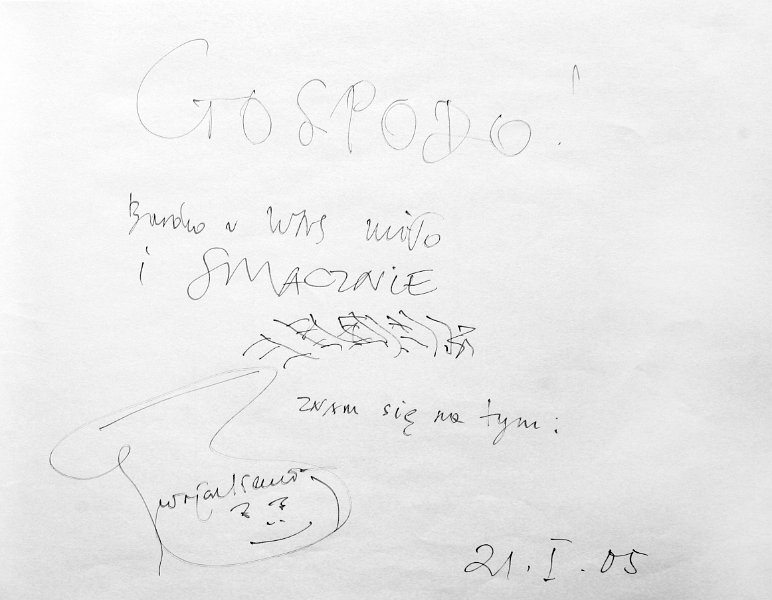 GOSPODO!
Bardzo u WAS miło
i SMACZNIE
znam się na tym:
21.I.05